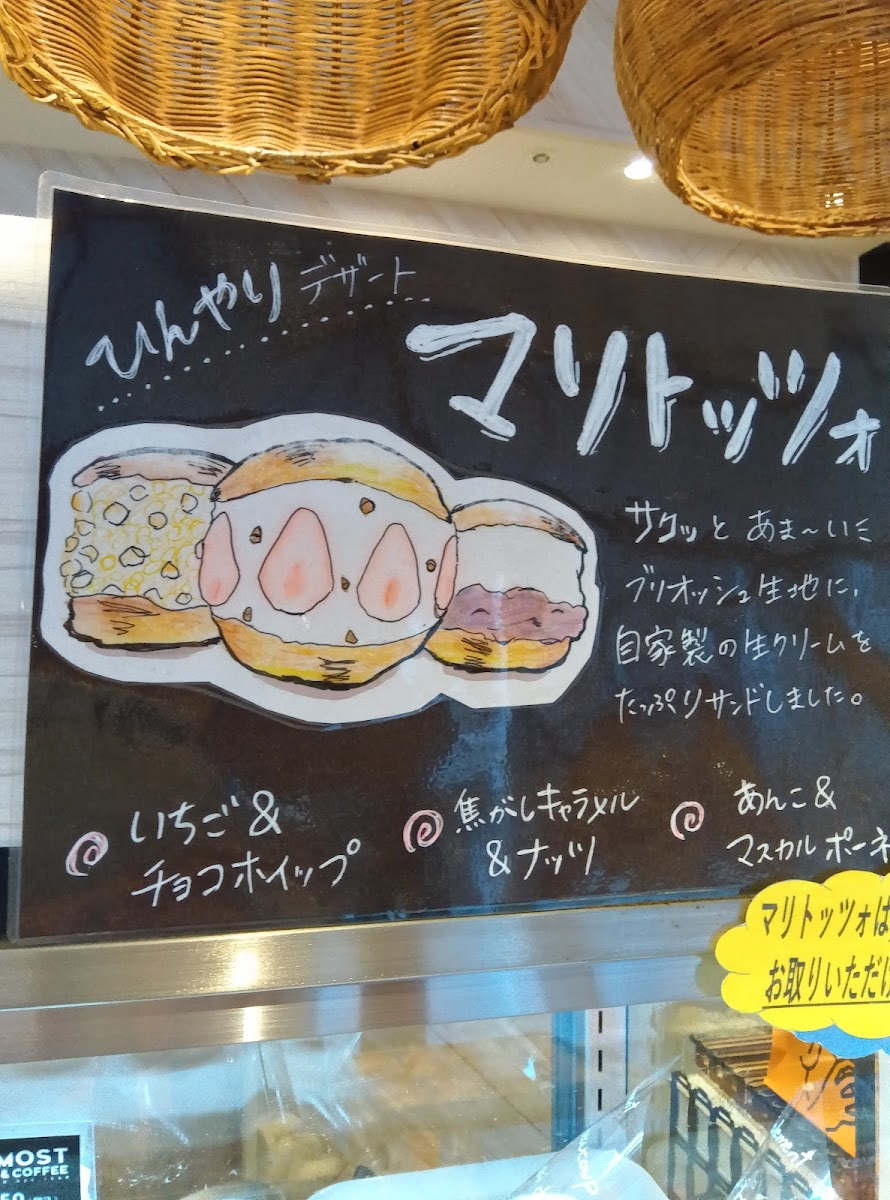 ひんやりデザート
マリトッツォ
サクッとあま〜いミ
ブリオッシュ生地に、
自家製の生クリームを
たっぷりサンドしました。
いちご&
チョコホイップ
焦がしキャラメル
&ナッツ
あんこ&
マスカルポーネ
マリトッツォは
お取りいただけ
MOST
& COFFEE